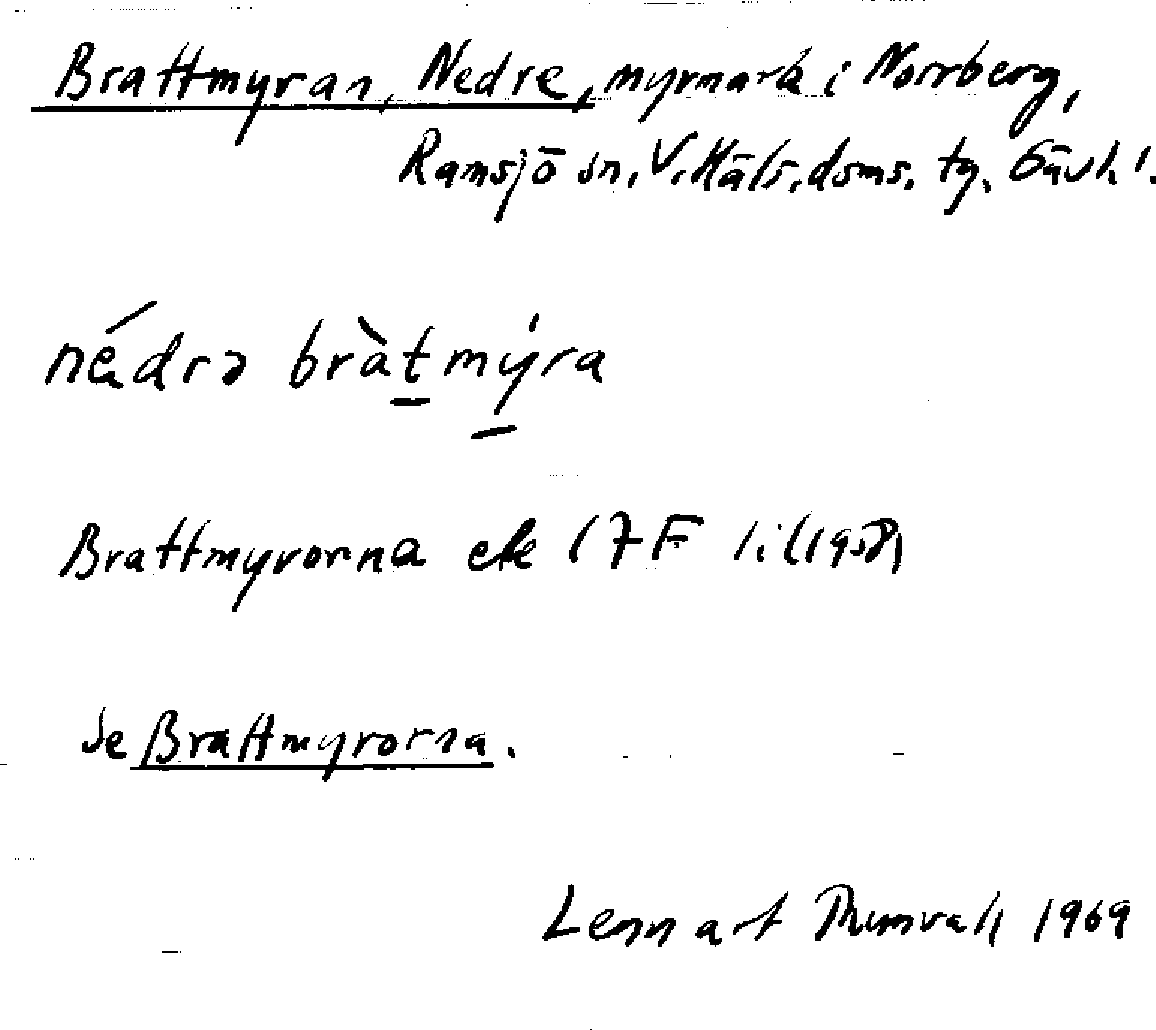 Brattmyran, Nedre, myrmark i Norrberg,
Ramsjö sn, V. Häls. doms. tg. Gävl.
nédrə bràtmýra
Brattmyrorna ek 17F 1958
Se Brattmyrorna.
Lennart Thunvall 1969